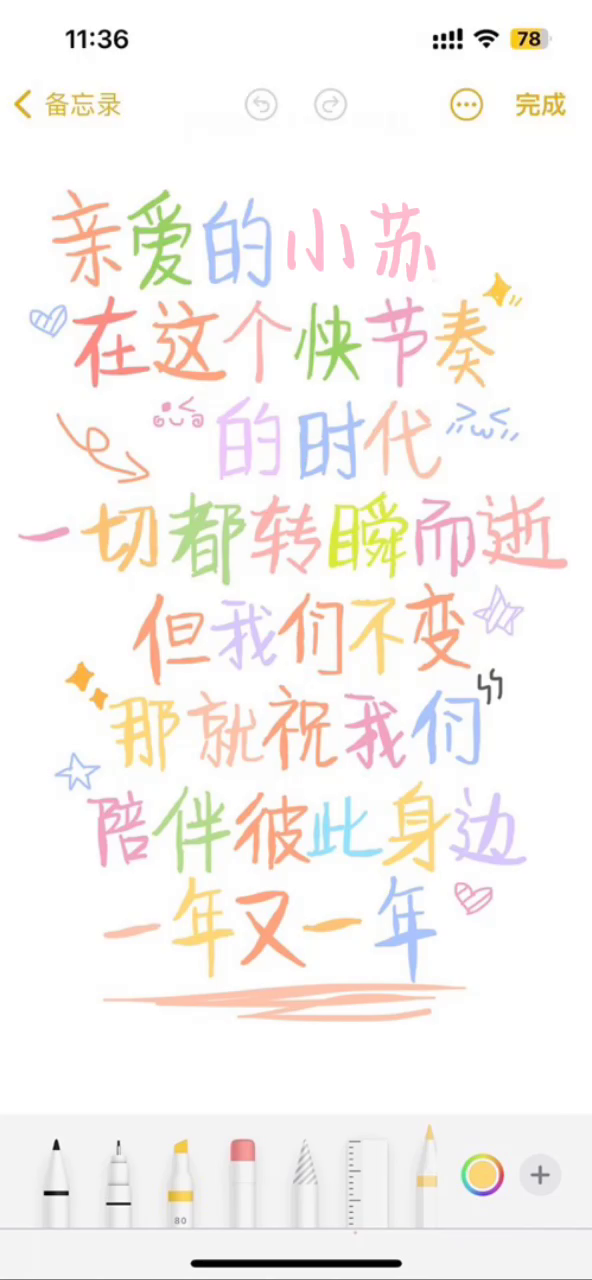 11:36
78
备忘录
完成
亲爱的小苏
在这个快节奏
的时代
一切都转瞬而逝
但我们不变
那就祝我们
陪伴彼此身边
一年又一年
80